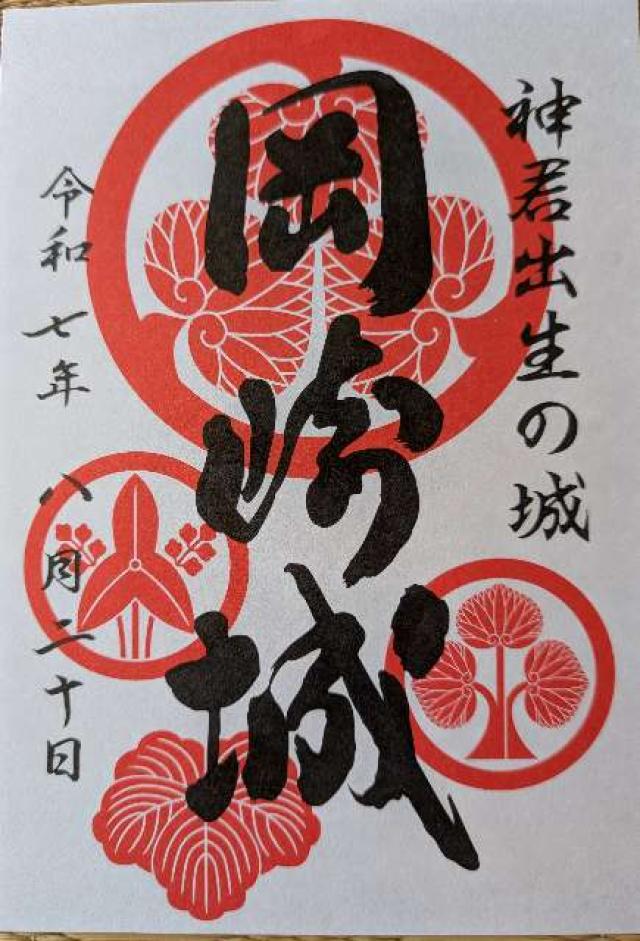 神君出生の城
岡崎城
令和七年八月二十日